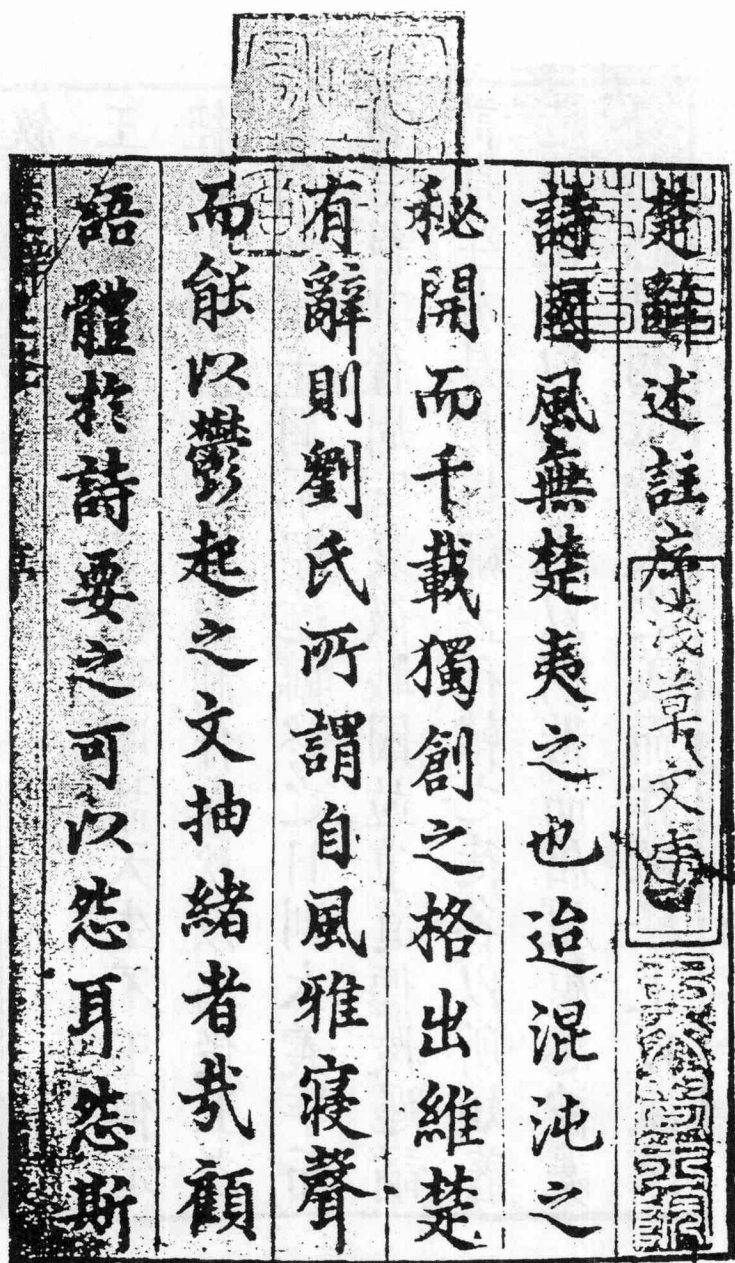 楚辭述註序
詩國風無楚夷之也迨混沌之
秘開而千載獨創之格出維楚
有辭則劉氏所謂自風雅寢聲
而能以鬱起之文抽緒者哉顧
語體於詩要之可以怨耳怨斯
淺草文庫